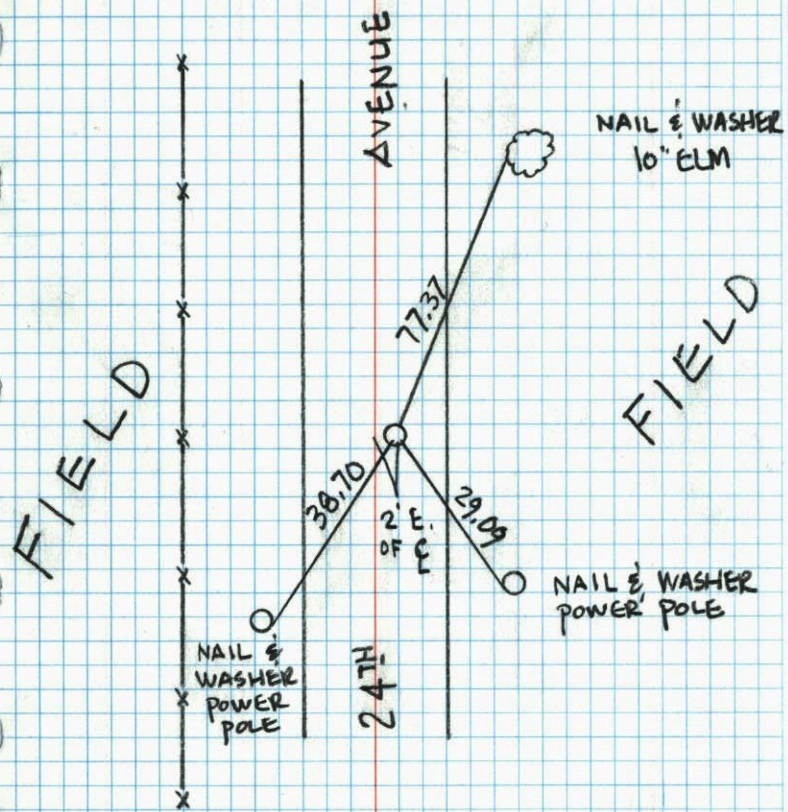 AVENUE
NAIL & WASHER
10" ELM
77.37
FIELD
FIELD
38.70
29.09
2' E.
OF ℄
NAIL & WASHER
POWER POLE
NAIL &
WASHER
POWER
POLE
24TH